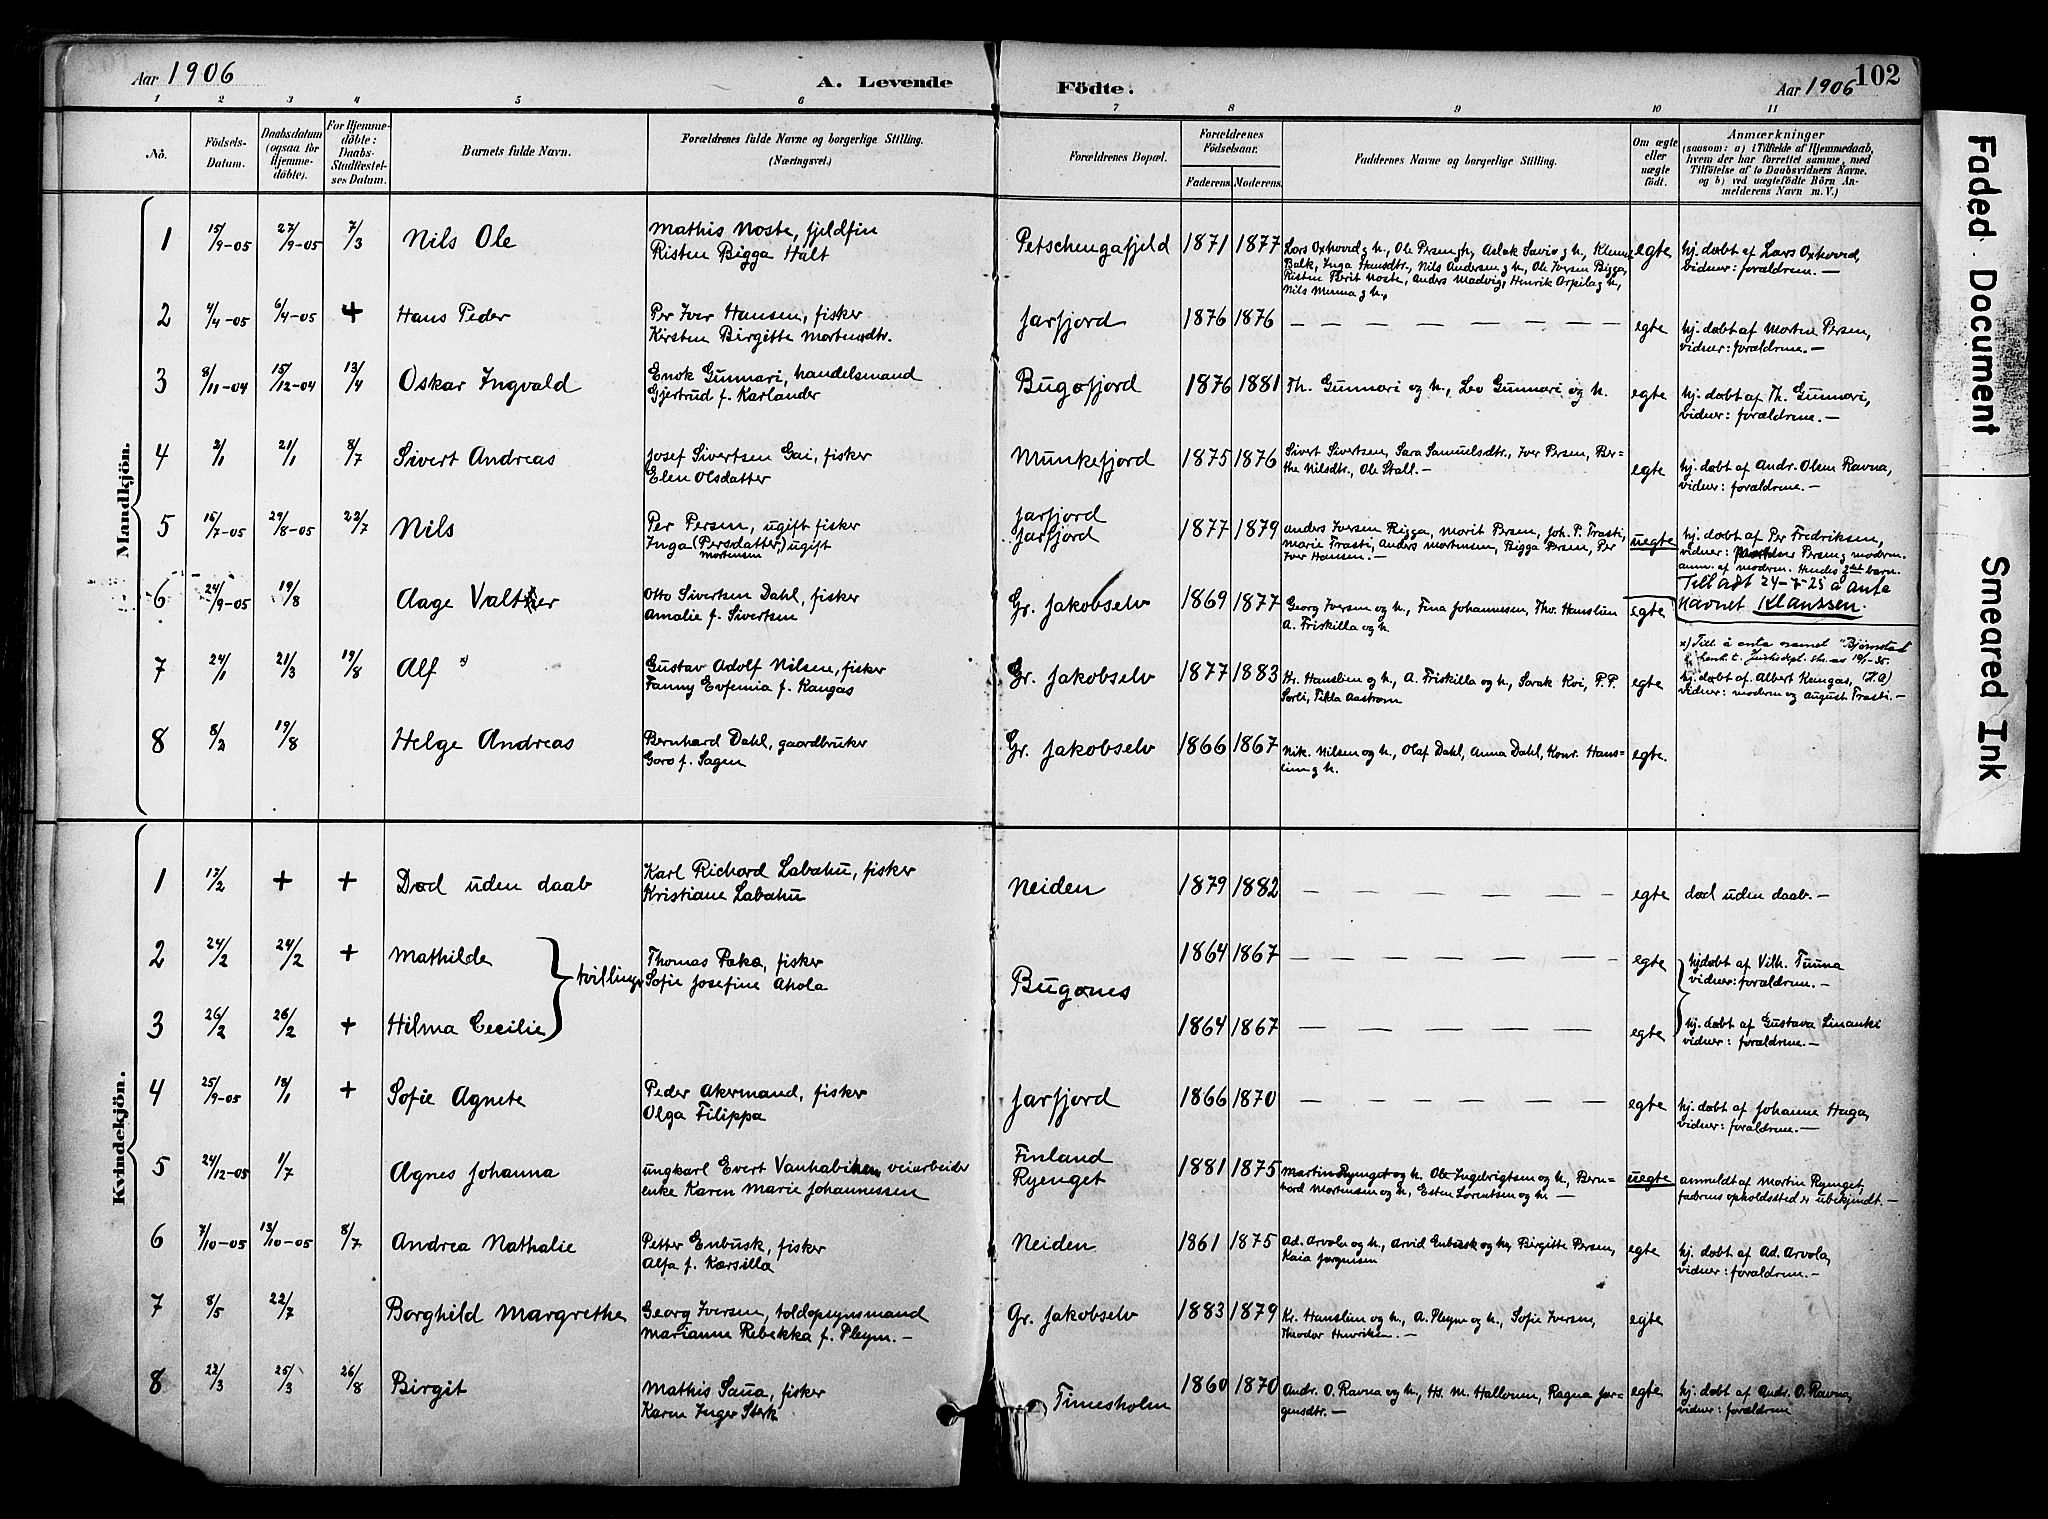 Aar 1906 A. Levende Födte. Aar 1906 102
1 2 3 4 5 6 7 8 9 10 11
No. Födsels-Datum. Daabsdatum (ogsaa for Hjemme-döbte). For Hjemme-döbte: Daabs-Stadfæstel-ses Datum. Barnets fulde Navn. Forældrenes fulde Navne og borgerlige Stilling. (Næringsvei.) Forældrenes Bopæl. Forældrenes Födselsaar. Faderens. Moderens. Faddernes Navne og borgerlige Stilling. Om ægte eller uægte födt. Anmærkninger (saasom: a) i Tilfælde af Hjemmedaab, hvem der har forrettet samme, med Tilföielse af to Daabsvidners Navne, og b) ved uægtefödte Börn Anmelderens Navn m. V.)
Mandkjön.
1 15/9-05 27/9-05 7/3 Nils Ole Mathis Noste, fjeldfin Petschengafjeld 1871 1877 Lars Oxhovd g h, Ole Persen g h, Aslak Savio g h, Klemme egte hj. døbt af Lars Oxhovd,
Risten Bigga Halt Balk, Inga Hansdtr., Nils Andersen g h, Ole Iversen Bigga, vidner: forældrene. —
Risten Berit Noste, Anders Madvig, Henrik Arpila g h,
Nils Menna g h,
2 4/4-05 6/4-05 + Hans Peder Per Iver Hansen, fisker Jarfjord 1876 1876 — — — — — — — egte hj. døbt af Morten Persen,
Kirsten Birgitte Mortensdtr. vidner: forældrene. —
3 8/11-04 15/12-04 13/4 Oskar Ingvald Enok Gunnari, handelsmand Bugøfjord 1876 1881 Th. Gunnari og h., Leo Gunnari og h. egte hj. døbt af Th. Gunnari,
Gjertrud f. Karlander vidner: forældrene. —
4 2/1 21/1 8/7 Sivert Andreas Josef Sivertsen Gai, fisker Munkefjord 1875 1876 Sivert Sivertsen, Sara Samuelsdtr., Iver Persen, Ber-
Elen Olsdatter the Nilsdtr., Ole Stall. — egte hj. døbt af Andr. Olsen Ravna,
vidner: forældrene. —
5 15/7-05 29/8-05 22/7 Nils Per Persen, ugift fisker Jarfjord 1877 1879 Anders Iversen Bigga, Morit Persen, Joh. P. Trasti, uegte hj. døbt af Per Fredriksen,
Inga (Persdatter,) ugift Jarfjord Marie Trasti, Anders Mortensen, Bigga Persen, Per vidner: Persen g modern.
Mortensen Iver Hansen. — anm. af modern. Hendes 2det barn.
6 24/9-05 19/8 Aage Valther Otto Sivertsen Dahl, fisker Gr. Jakobselv 1869 1877 Georg Iversen og h., Fina Johannessen, Thv. Hanslien egte Till adt 24-7-25 å anta
Amalie f. Sivertsen A. Friskilla og h. Navnet Klaussen.
7 24/1 21/3 19/8 Alf x) Gustav Adolf Nilsen, fisker Gr. Jakobselv 1877 1883 Kr. Hanslien og h., A. Friskilla og h., Sarak Koi, P. P. egte x) Till. å anta navnet "Bjørnstad"
Fanny Evfemia f. Kangas Sorli, Tekla Aastrøm hj. døbt af Albert Kangas,
vidner: modern og August Trasti. —
8 8/2 19/8 Helge Andreas Bernhard Dahl, gaardbruker Gr. Jakobselv 1866 1867 Nik. Nilsen og h., Olaf Dahl, Anna Dahl, Konr. Hans- egte.
Goro f. Sagen lien g h.
Kvindekjön.
1 13/2 + + Død uden daab Karl Richard Labahu, fisker Neiden 1879 1882 — — — — — — egte død uden daab. —
Kristiane Labahu
2 24/2 24/2 + Mathilde tvillinger Thomas Paka, fisker Bugønes 1864 1867 — — — — — — egte hj døbt af Vilh. Tuuna
Sofie Josefine Ahola vidner: forældrene. —
3 26/2 26/2 + Hilma Cecilie 1864 1867 — — — — — — egte hj. døbt af Gustava Linanki
vidner: forældrene. —
4 25/9-05 18/1 + Sofie Agnete Peder Akermand, fisker Jarfjord 1866 1870 — — — — — — egte hj. døbt af Johanne Haga,
Olga Filippa vidner: forældrene. —
5 24/12-05 1/7 Agnes Johanna ungkarl Evert Vanhabiken veiarbeider Finland 1881 1875 Martin Ryenget og h., Ole Ingebrigtsen og h., Bern- uegte anmeldt af Martin Ryenget,
enke Karen Marie Johannessen Ryenget hard Mortensen og h., Esten Lorentsen og h. — faderens opholdssted er ubekjendt. —
6 7/10-05 13/10-05 8/7 Andrea Nathalie Petter Enbusk, fisker Neiden 1861 1875 Ad. Arvola og h., Arvid Enbusk og h., Birgitte Persen, egte hj. døbt af Ad. Arvola,
Alfa f. Karsilla Kaia Jørgensen vidner: forældrene. —
7 8/5 22/7 Borghild Margrethe Georg Iversen, toldopsynsmand Gr. Jakobselv 1883 1879 Kr. Hanslien og h., A. Pleym og h., Sofie Iversen, egte
Marianne Rebekka f. Pleym. — Theodor Henriksen. —
8 22/3 25/3 26/8 Birgit Mathis Saua, fisker Timesholm 1860 1870 Andr. O. Ravna og h., Hs. M. Halvonen, Ragna Jør- egte hj. døbt af Andr. O. Ravna,
Karen Inger Sterk gensdtr. — vidner: forældrene
Faded Document
Smeared Ink